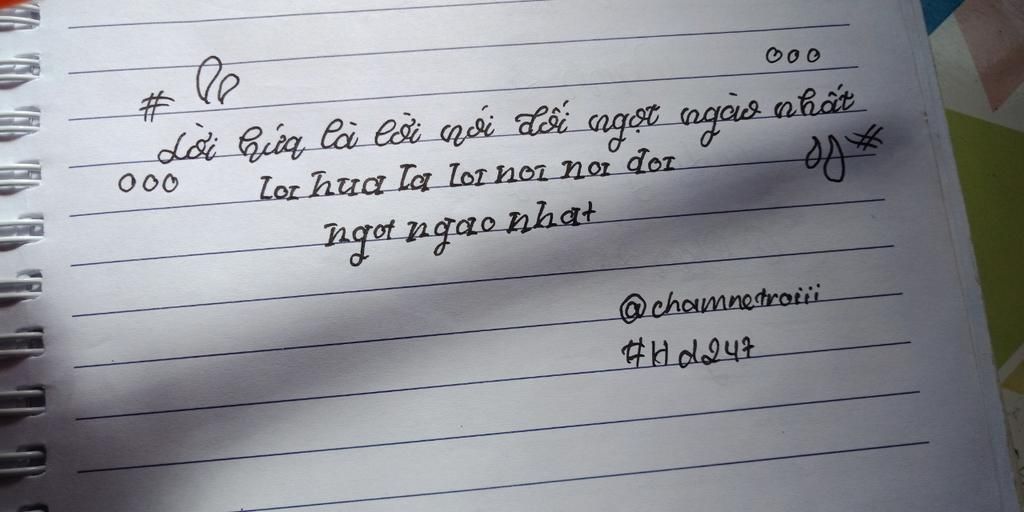 ooo
#
Lời hứa là lời nói dối ngọt ngào nhất
#
ooo
loi hua la loi noi noi doi
ngot ngao nhat
@chamnetroiii
#Hd247